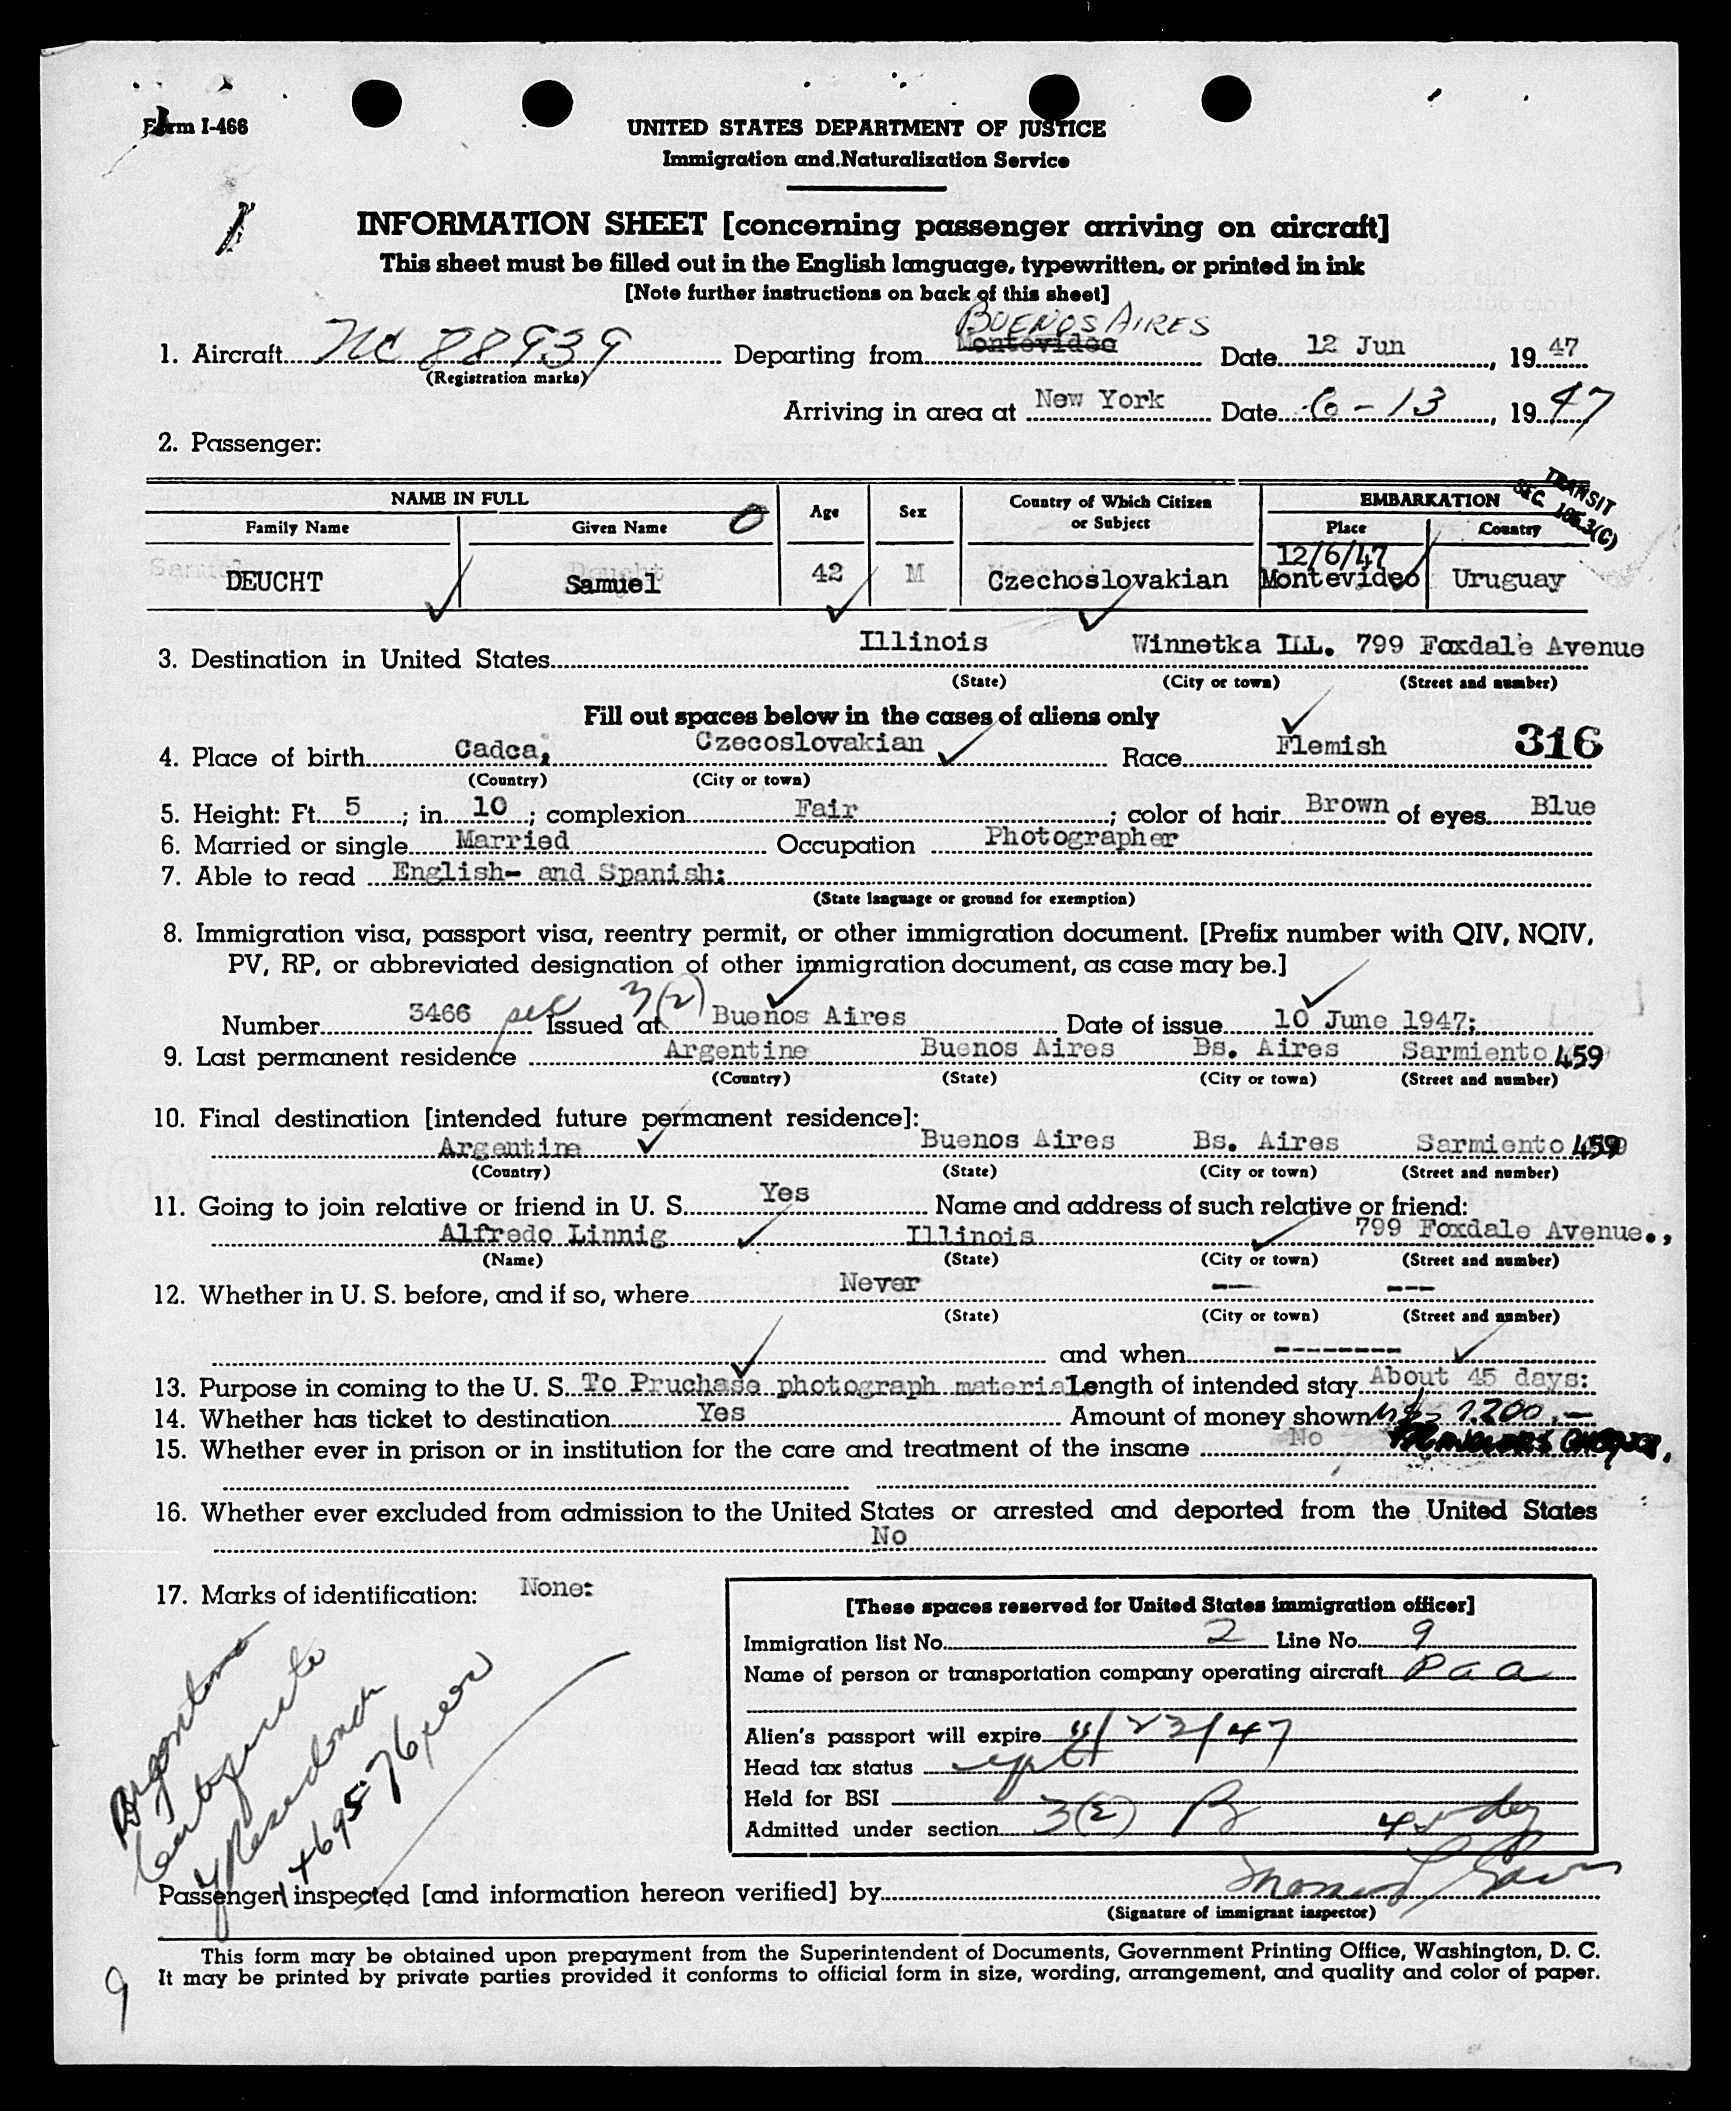 Form I-466
UNITED STATES DEPARTMENT OF JUSTICE
Immigration and Naturalization Service
INFORMATION SHEET [concerning passenger arriving on aircraft]
This sheet must be filled out in the English language, typewritten, or printed in ink
[Note further instructions on back of this sheet]
BUENOS AIRES
1. Aircraft NC 88939 Departing from Montevideo Date 12 Jun, 19 47
(Registration marks)
Arriving in area at New York Date 6-13, 19 47
2. Passenger:
TRANSIT
SEC. 105.3(C)
NAME IN FULL Age Sex Country of Which Citizen or Subject EMBARKATION
Family Name Given Name Place Country
12/6/47
DEUCHT Samuel 42 M Czechoslovakian Montevideo Uruguay
3. Destination in United States Illinois Winnetka ILL. 799 Foxdale Avenue
(State) (City or town) (Street and number)
Fill out spaces below in the cases of aliens only
4. Place of birth Cadca, Czecoslovakian Race Flemish 316
(Country) (City or town)
5. Height: Ft. 5; in. 10; complexion Fair; color of hair Brown of eyes Blue
6. Married or single Married Occupation Photographer
7. Able to read English- and Spanish:
(State language or ground for exemption)
8. Immigration visa, passport visa, reentry permit, or other immigration document. [Prefix number with QIV, NQIV,
PV, RP, or abbreviated designation of other immigration document, as case may be.]
Number 3466 sec 3(2) Issued at Buenos Aires Date of issue 10 June 1947:
9. Last permanent residence Argentine Buenos Aires Bs. Aires Sarmiento 459
(Country) (State) (City or town) (Street and number)
10. Final destination [intended future permanent residence]:
Argentine Buenos Aires Bs. Aires Sarmiento 459
(Country) (State) (City or town) (Street and number)
11. Going to join relative or friend in U. S. Yes Name and address of such relative or friend:
Alfredo Linnig Illinois 799 Foxdale Avenue.,
(Name) (State) (City or town) (Street and number)
12. Whether in U. S. before, and if so, where Never -- ---
(State) (City or town) (Street and number)
and when ---------
13. Purpose in coming to the U. S. To Pruchase photograph material Length of intended stay About 45 days:
14. Whether has ticket to destination Yes Amount of money shown 1.200.—
15. Whether ever in prison or in institution for the care and treatment of the insane No
16. Whether ever excluded from admission to the United States or arrested and deported from the United States
No
17. Marks of identification: None:
[These spaces reserved for United States immigration officer]
Immigration list No. 2 Line No. 9
Name of person or transportation company operating aircraft P a a
Alien's passport will expire 11/23/47
Head tax status
Held for BSI
Admitted under section 3(2) B 45 day
Argentine
Certificate
of Residence
Passenger inspected [and information hereon verified] by
(Signature of immigrant inspector)
This form may be obtained upon prepayment from the Superintendent of Documents, Government Printing Office, Washington, D. C.
It may be printed by private parties provided it conforms to official form in size, wording, arrangement, and quality and color of paper.
9